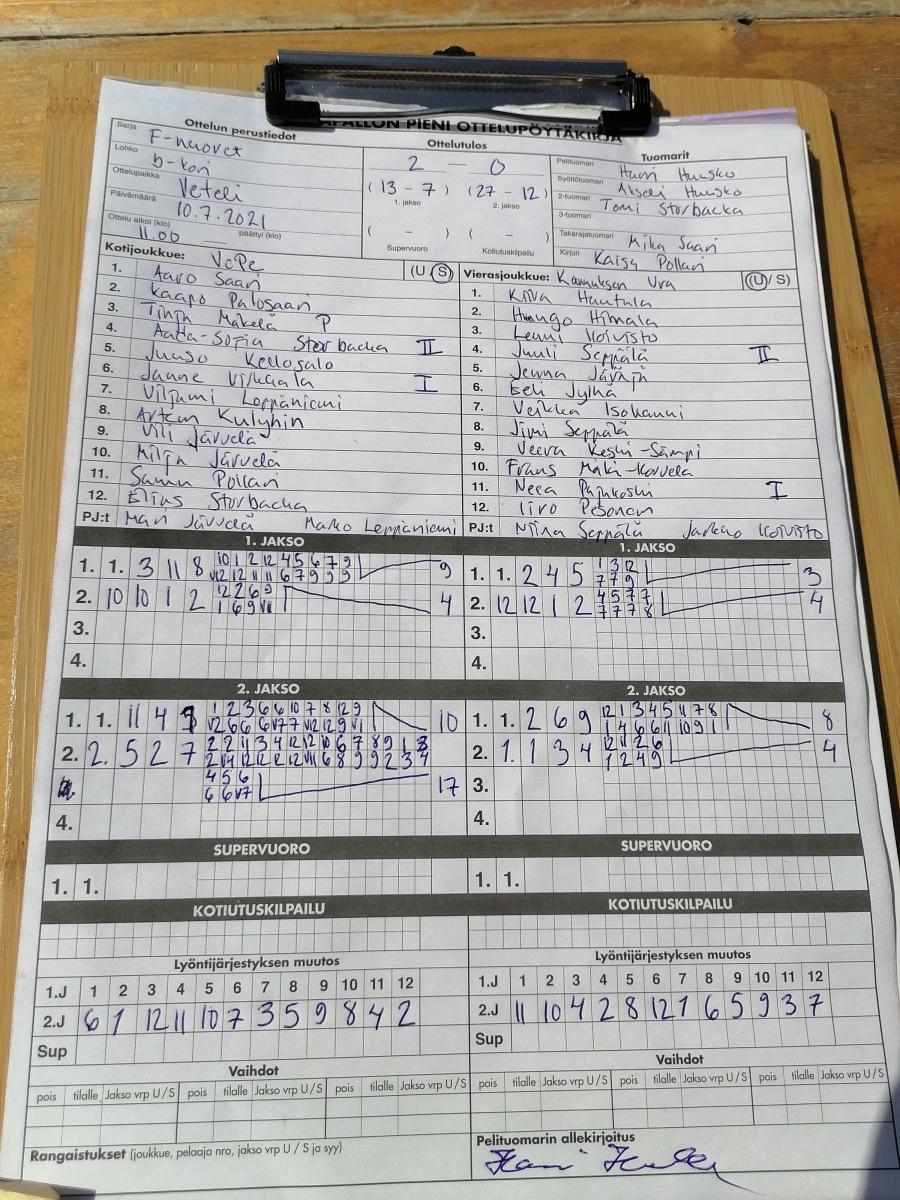 PIENI OTTELUPÖYTÄKIRJA
Ottelun perustiedot
Sarja F-nuoret
Lohko b-kori
Ottelupaikka Veteli
Päivämäärä 10.7.2021
Ottelu alkoi (klo) 11.00 päättyi (klo)
Ottelutulos
2 – 0
(13 – 7) (27 – 12)
1. jakso 2. jakso
( – ) ( – )
Supervuoro Kotiutuskilpailu
Tuomarit
Pelituomari Harri Huusko
Syöttötuomari Akseli Huusko
2-tuomari Tomi Storbacka
3-tuomari
Takarajatuomari Mika Saari
Kirjuri Kaisa Pollari
Kotijoukkue: VePe (U S)
1. Aaro Saari
2. Kaapo Palosaari
3. Tinja Mäkelä P
4. Aada-Sofia Storbacka II
5. Juuso Kellosalo
6. Janne Virkaala I
7. Viljami Leppäniemi
8. Artem Kulyhin
9. Vili Järvelä
10. Milja Järvelä
11. Samu Pollari
12. Elias Storbacka
PJ:t Mari Järvelä Marko Leppäniemi
Vierasjoukkue: Kannuksen Ura (U/S)
1. Hautala
2. Huugo Himala
3. Lenni Koivisto
4. Juuli Seppälä II
5. Jenna
6. Eeli Jylhä
7. Veikka Isohanni
8. Jimi Seppälä
9. Veera Keski-Sämpi
10. Frans Mäki-Korvela
11. Neea Pajukoski I
12. Iiro Pesonen
PJ:t Niina Seppälä Jarkko Koivisto
1. JAKSO
1. 1. 3 11 8 10 1 2 12 4 5 6 7 9 9
V12 12 11 11 6 7 9 9 9
2. 10 10 1 2 12 2 6 9 4
1 6 9 V11
3.
4.
1. JAKSO
1. 1. 2 4 5 1 3 12 3
7 7 9
2. 12 12 1 2 4 5 7 7 4
7 7 7 8
3.
4.
2. JAKSO
1. 1. 11 4 1 2 3 6 6 10 7 8 12 9 10
V2 6 6 6 V7 7 V12 12 9 V1
2. 2. 5 2 7 2 2 11 3 4 12 12 10 6 7 8 9 1 3
4 5 6 17
6 6 V7
4.
2. JAKSO
1. 1. 2 6 9 12 1 3 4 5 11 7 8 8
1 4 6 6 11 10 9 1
2. 1. 1 3 4 12 11 2 6 4
1 2 4 9
3.
4.
SUPERVUORO
1. 1.
SUPERVUORO
1. 1.
KOTIUTUSKILPAILU
KOTIUTUSKILPAILU
Lyöntijärjestyksen muutos
1.J 1 2 3 4 5 6 7 8 9 10 11 12
2.J 6 1 12 11 10 7 3 5 9 8 4 2
Sup
Lyöntijärjestyksen muutos
1.J 1 2 3 4 5 6 7 8 9 10 11 12
2.J 11 10 4 2 8 12 1 6 5 9 3 7
Sup
Vaihdot
pois tilalle Jakso vrp U / S pois tilalle Jakso vrp U / S pois tilalle Jakso vrp U / S
Vaihdot
pois tilalle Jakso vrp U / S pois tilalle Jakso vrp U / S pois tilalle Jakso vrp U / S
Rangaistukset (joukkue, pelaaja nro, jakso vrp U / S ja syy)
Pelituomarin allekirjoitus